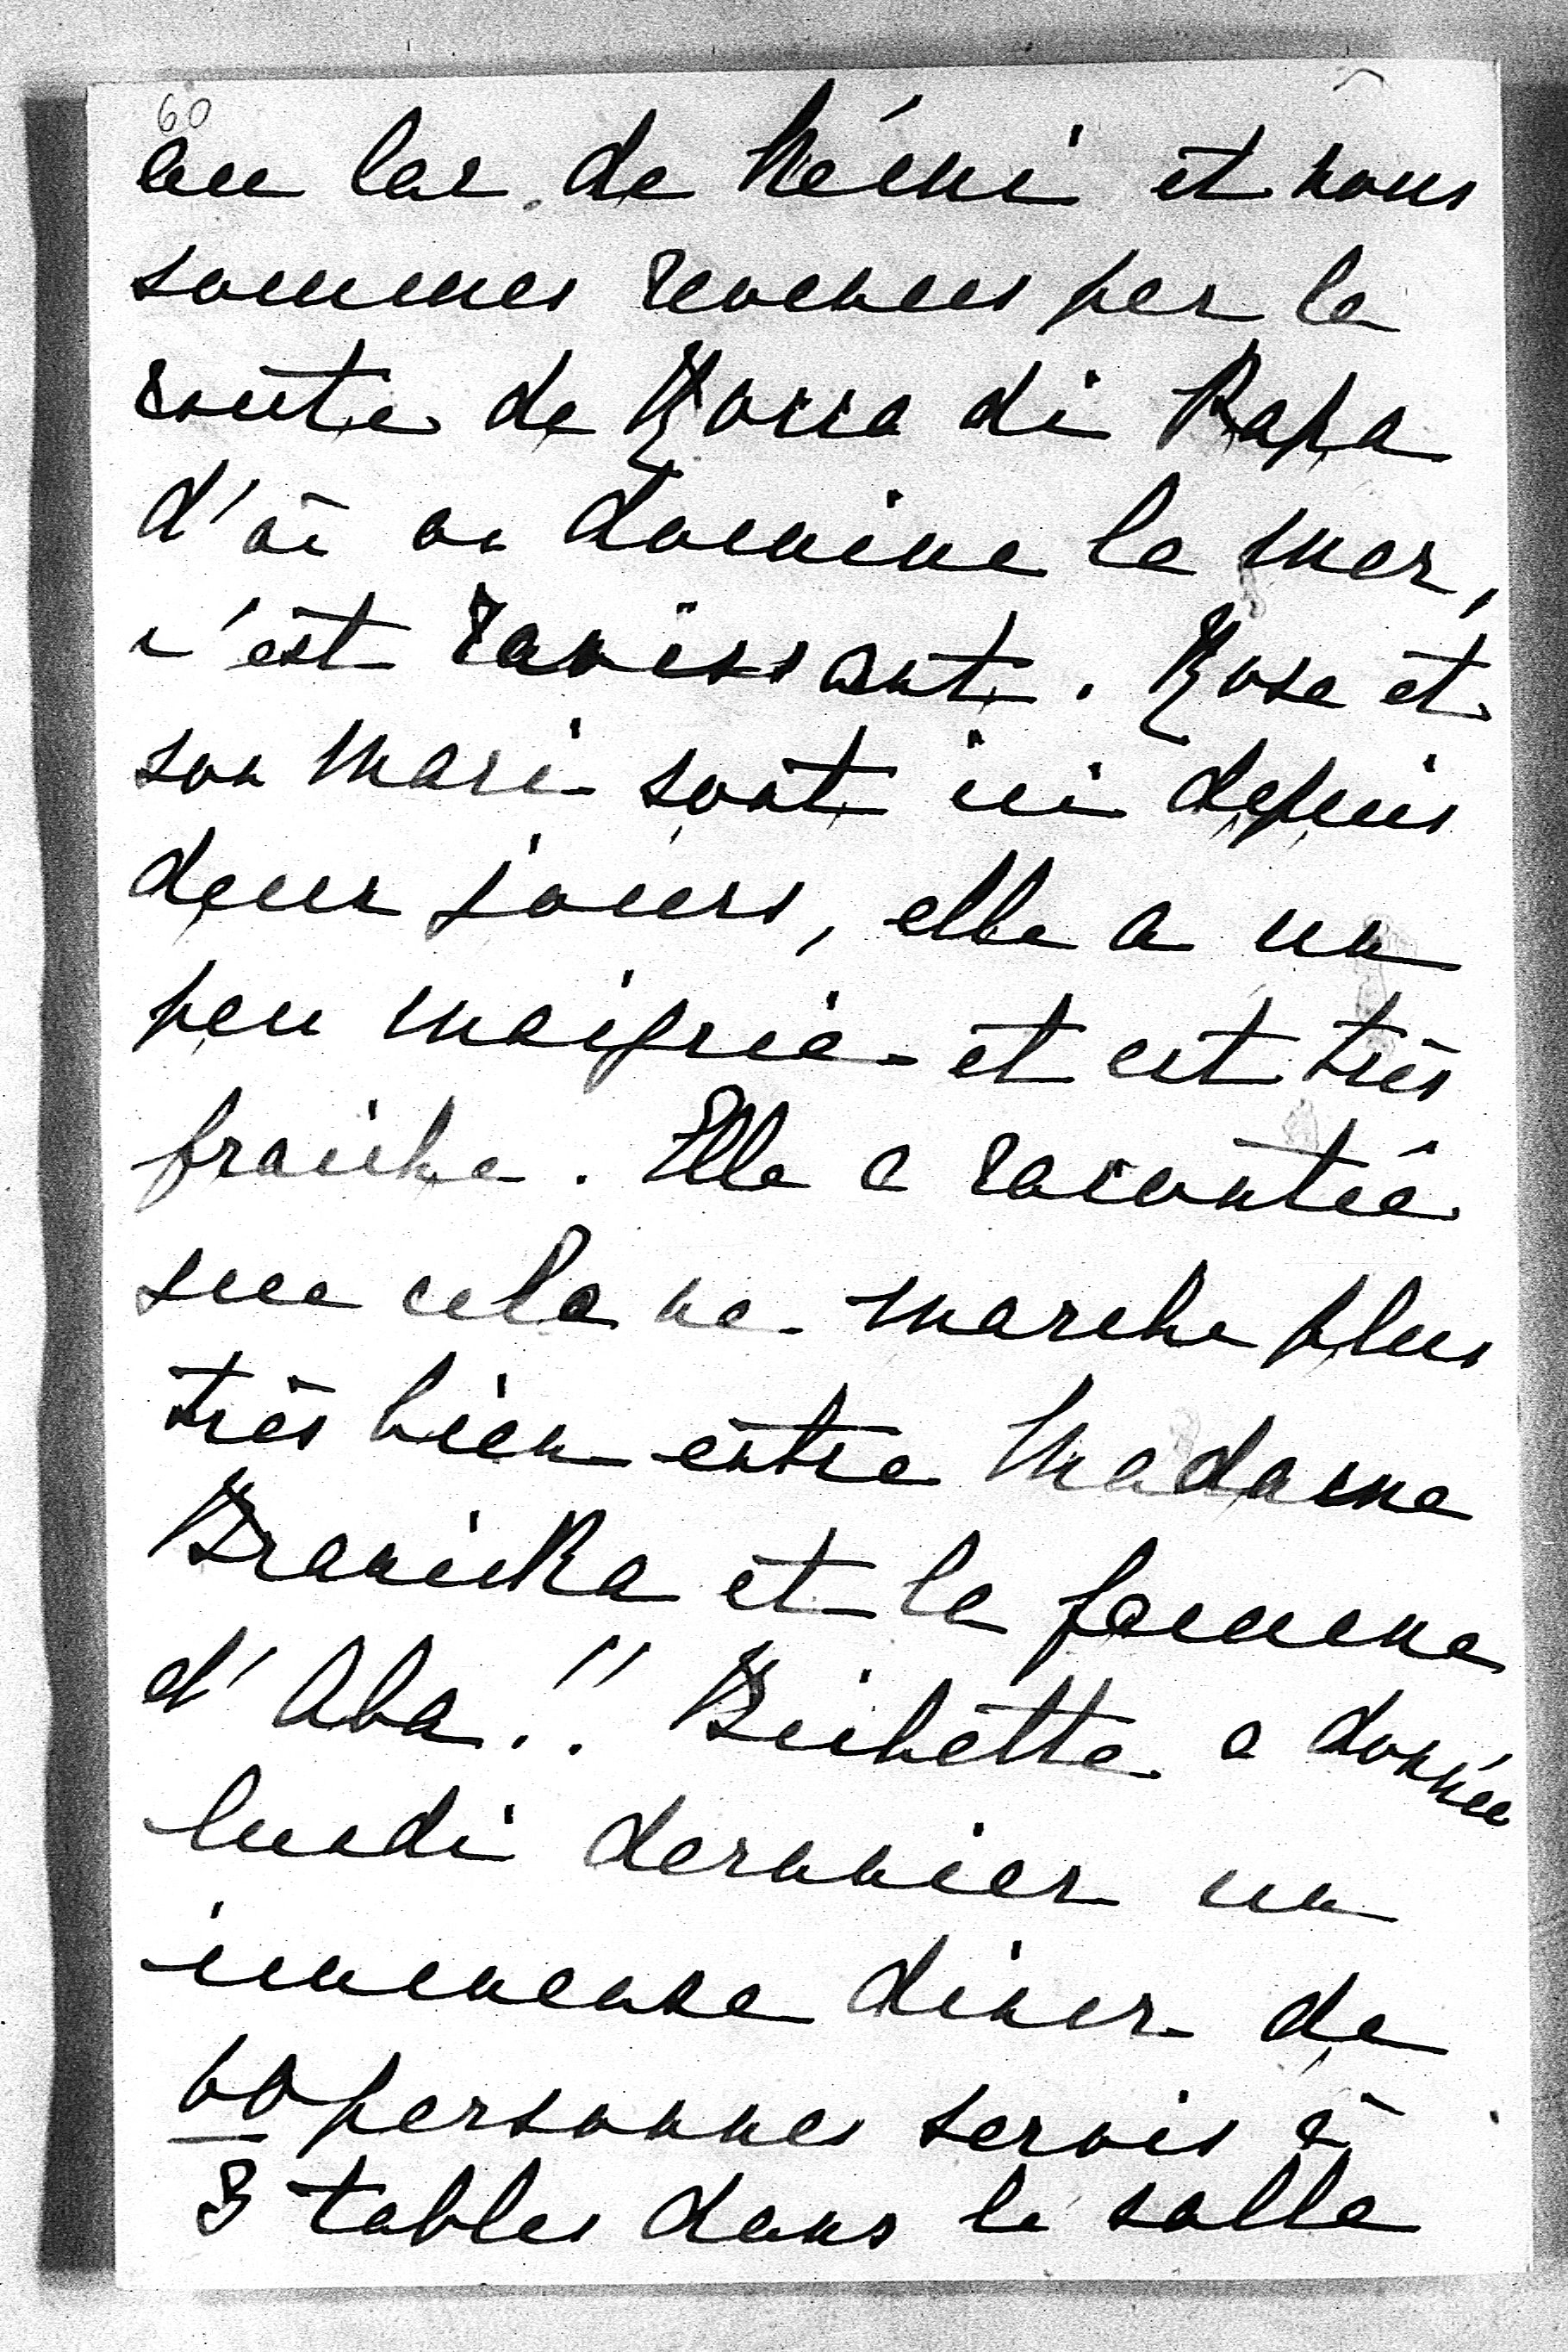 60
au lac de Némi et nous
sommes revenus par la
route de Rocca di Papa
d'où on domine la mer,
c'est ravissant. Rose et
son mari sont ici depuis
deux jours, elle a un
peu maigrie et est très
fraiche. Elle a racontée
que cela ne marche plus
très bien entre Madame
Branicka et la femme
d'Aba!! Bichette a donnée
lundi dernier un
immense diner de
60 personnes servis à
3 tables dans la salle